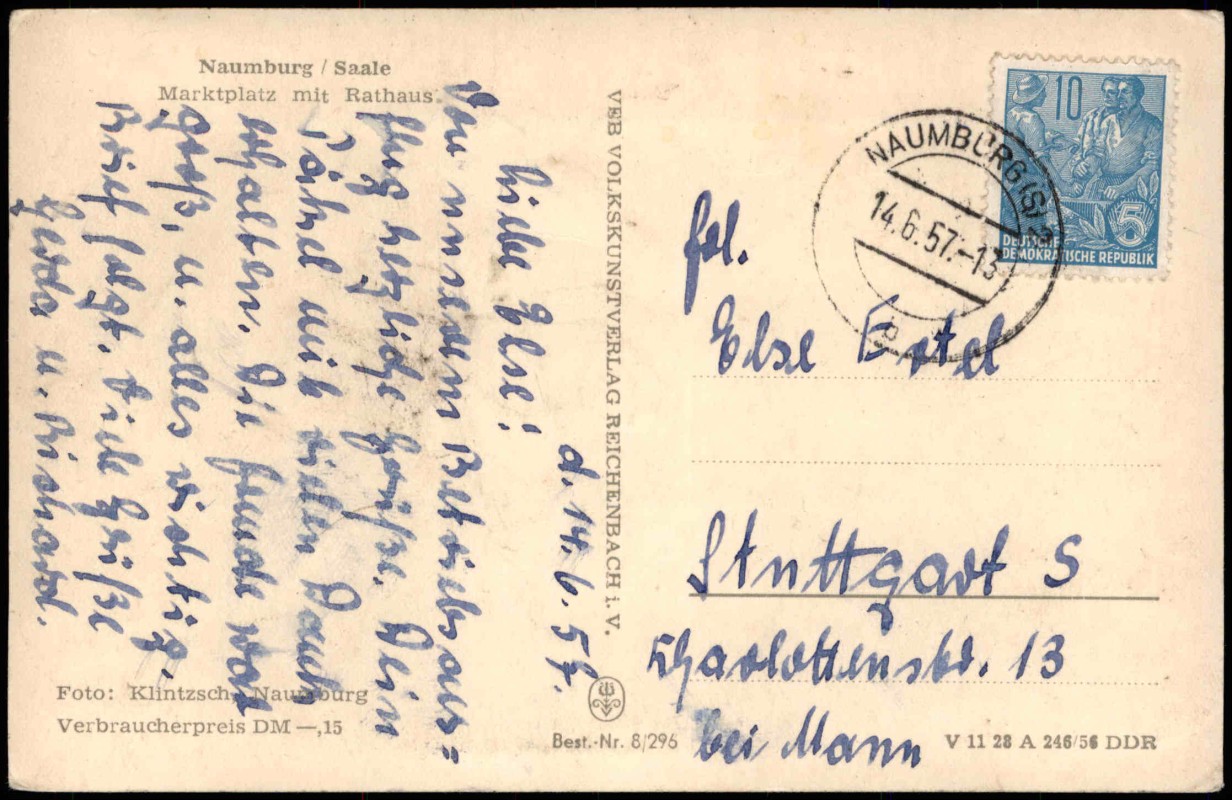 Naumburg / Saale
Marktplatz mit Rathaus
d. 14. 6. 57.
Liebe Else!
Von unserem Betriebsaus=
flug herzliche Grüße. Dein
Päckel mit vielen Dank
erhalten. Die Freude war
groß, u. alles wichtig.
Brief folgt. Viele Grüße
Gerda u. Richard.
Foto: Klintzsch, Naumburg
Verbraucherpreis DM —,15
VEB VOLKSKUNSTVERLAG REICHENBACH i. V.
Best.-Nr. 8/296
10
DEUTSCHE
DEMOKRATISCHE REPUBLIK
5
NAUMBURG (S) 2
14.6.57.-13
Frl.
Else
Stuttgart S
Charlottenstr. 13
bei Mann
V 11 28 A 246/56 DDR